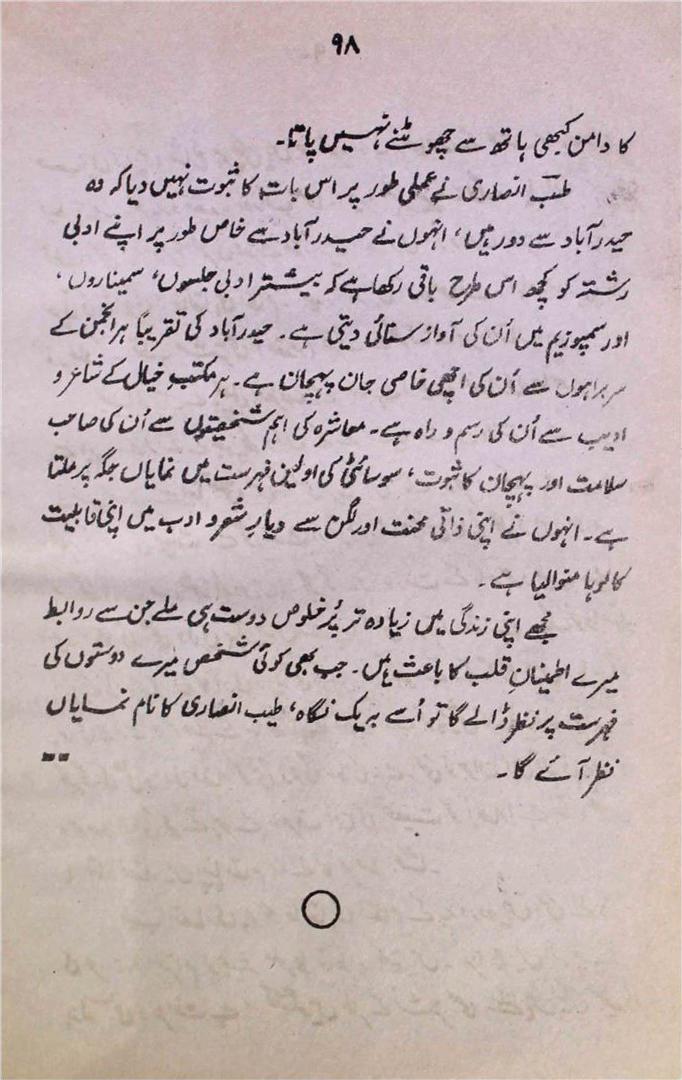 ۹۸
کا دامن کبھی ہاتھ سے چھوٹنے نہیں پاتا۔
طیب انصاری نے عملی طور پر اس بات کا ثبوت نہیں دیا کہ وہ
حیدرآباد سے دور ہیں، انہوں نے حیدرآباد سے خاص طور پر اپنے ادبی
رشتہ کو کچھ اس طرح باقی رکھا ہے کہ بیشتر ادبی جلسوں، سمیناروں،
اور سمپوزیم میں اُن کی آواز سنائی دیتی ہے۔ حیدرآباد کی تقریباً ہر انجمن کے
سربراہوں سے اُن کی اچھی خاصی جان پہچان ہے۔ ہر مکتبِ خیال کے شاعر و
ادیب سے اُن کی رسم و راہ ہے۔ معاشرہ کی اہم شخصیتوں سے اُن کی صاحب
سلامت اور پہچان کا ثبوت، سوسائٹی کی اولین فہرست میں نمایاں جگہ پر ملتا
ہے۔ انہوں نے اپنی ذاتی محنت اور لگن سے دیارِ شعر و ادب میں اپنی قابلیت
کا لوہا منوالیا ہے۔
مجھے اپنی زندگی میں زیادہ تر پُر خلوص دوست ہی ملے جن سے روابط
میرے اطمینانِ قلب کا باعث ہیں۔ جب بھی کوئی شخص میرے دوستوں کی
فہرست پر نظر ڈالے گا تو اُسے بہ یک نگاہ، طیب انصاری کا نام نمایاں
نظر آئے گا۔ ==